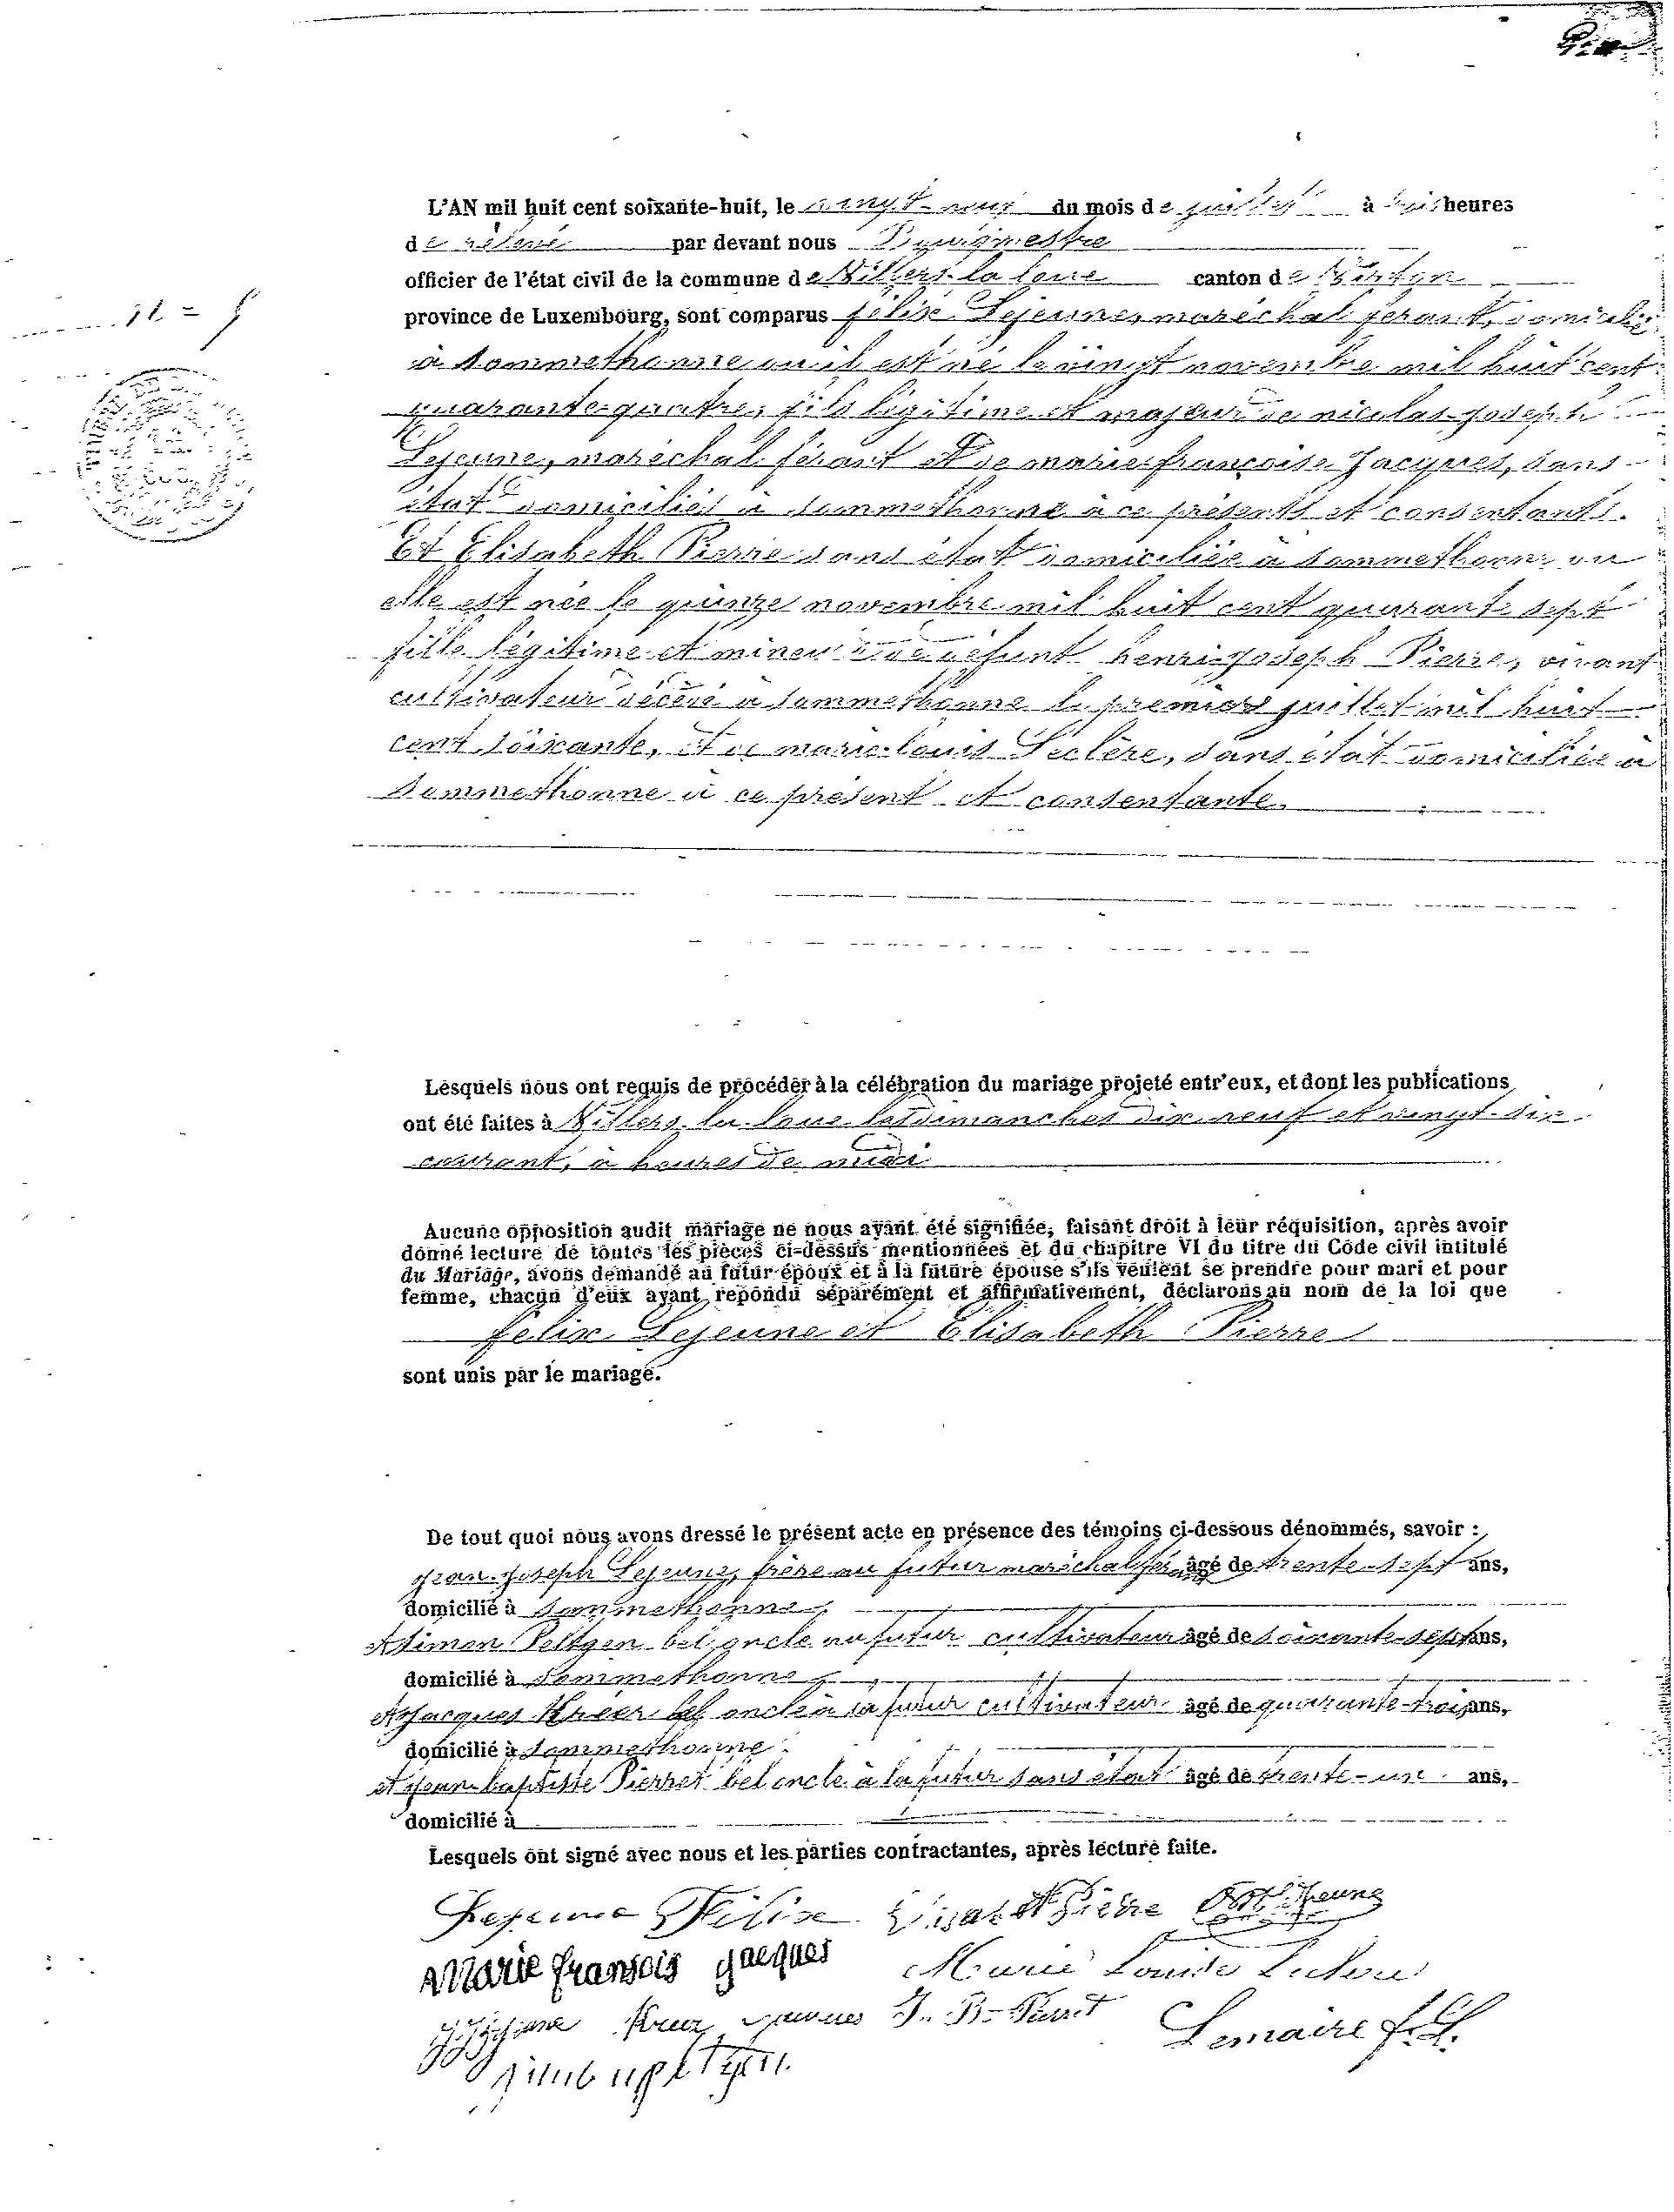 L'AN mil huit cent soixante-huit, le vingt-neuf du mois de juillet à trois heures
de relevé par devant nous Bourgmestre
officier de l'état civil de la commune de Villers-la-loue canton de Virton
province de Luxembourg, sont comparus félix Lejeune, maréchal férant, domicilié
à Sommethonne ou il est né le vingt novembre mil huit cent
quarante-quatre, fils légitime et majeur de nicolas-joseph
Lejeune, maréchal férant et de marie-françoise Jacques, sans
état domiciliés à Sommethonne à ce présents et consentants.
Et Elisabeth Pierre sans état domiciliée à Sommethonne ou
elle est née le quinze novembre mil huit cent quarante sept
fille légitime et mineure de défunt henri-joseph Pierre, vivant
cultivateur décédé à Sommethonne le premier juillet mil huit
cent soixante, et de marie-louis Leclère, sans état domiciliée à
Sommethonne à ce présent et consentante.
Lesquels nous ont requis de procéder à la célébration du mariage projeté entr'eux, et dont les publications
ont été faites à Villers-la-loue les dimanches dix-neuf et vingt-six
courant, à heures de midi
Aucune opposition audit mariage ne nous ayant été signifiée, faisant droit à leur réquisition, après avoir
donné lecture de toutes les pièces ci-dessus mentionnées et du chapitre VI du titre du Code civil intitulé
du Mariage, avons demandé au futur époux et à la future épouse s'ils veulent se prendre pour mari et pour
femme, chacun d'eux ayant répondu séparément et affirmativement, déclarons au nom de la loi que
felix Lejeune et Elisabeth Pierre
sont unis par le mariage.
De tout quoi nous avons dressé le présent acte en présence des témoins ci-dessous dénommés, savoir :
jean-joseph Lejeune, frère au futur maréchal férant âgé de trente-sept ans,
domicilié à Sommethonne
et Simon Peltgen bel oncle au futur cultivateur âgé de soixante-sept ans,
domicilié à Sommethonne
et Jacques Kréer bel oncle à la futur cultivateur âgé de quarante-trois ans,
domicilié à Sommethonne
et jean-baptiste Pierret bel oncle à la futur sans état âgé de trente-un ans,
domicilié à
Lesquels ont signé avec nous et les parties contractantes, après lecture faite.
Lejeune Félix Lisabet Pierre Lejeune
Marie fransois jacques Marie Louise
J. B. Pierret Lemaire